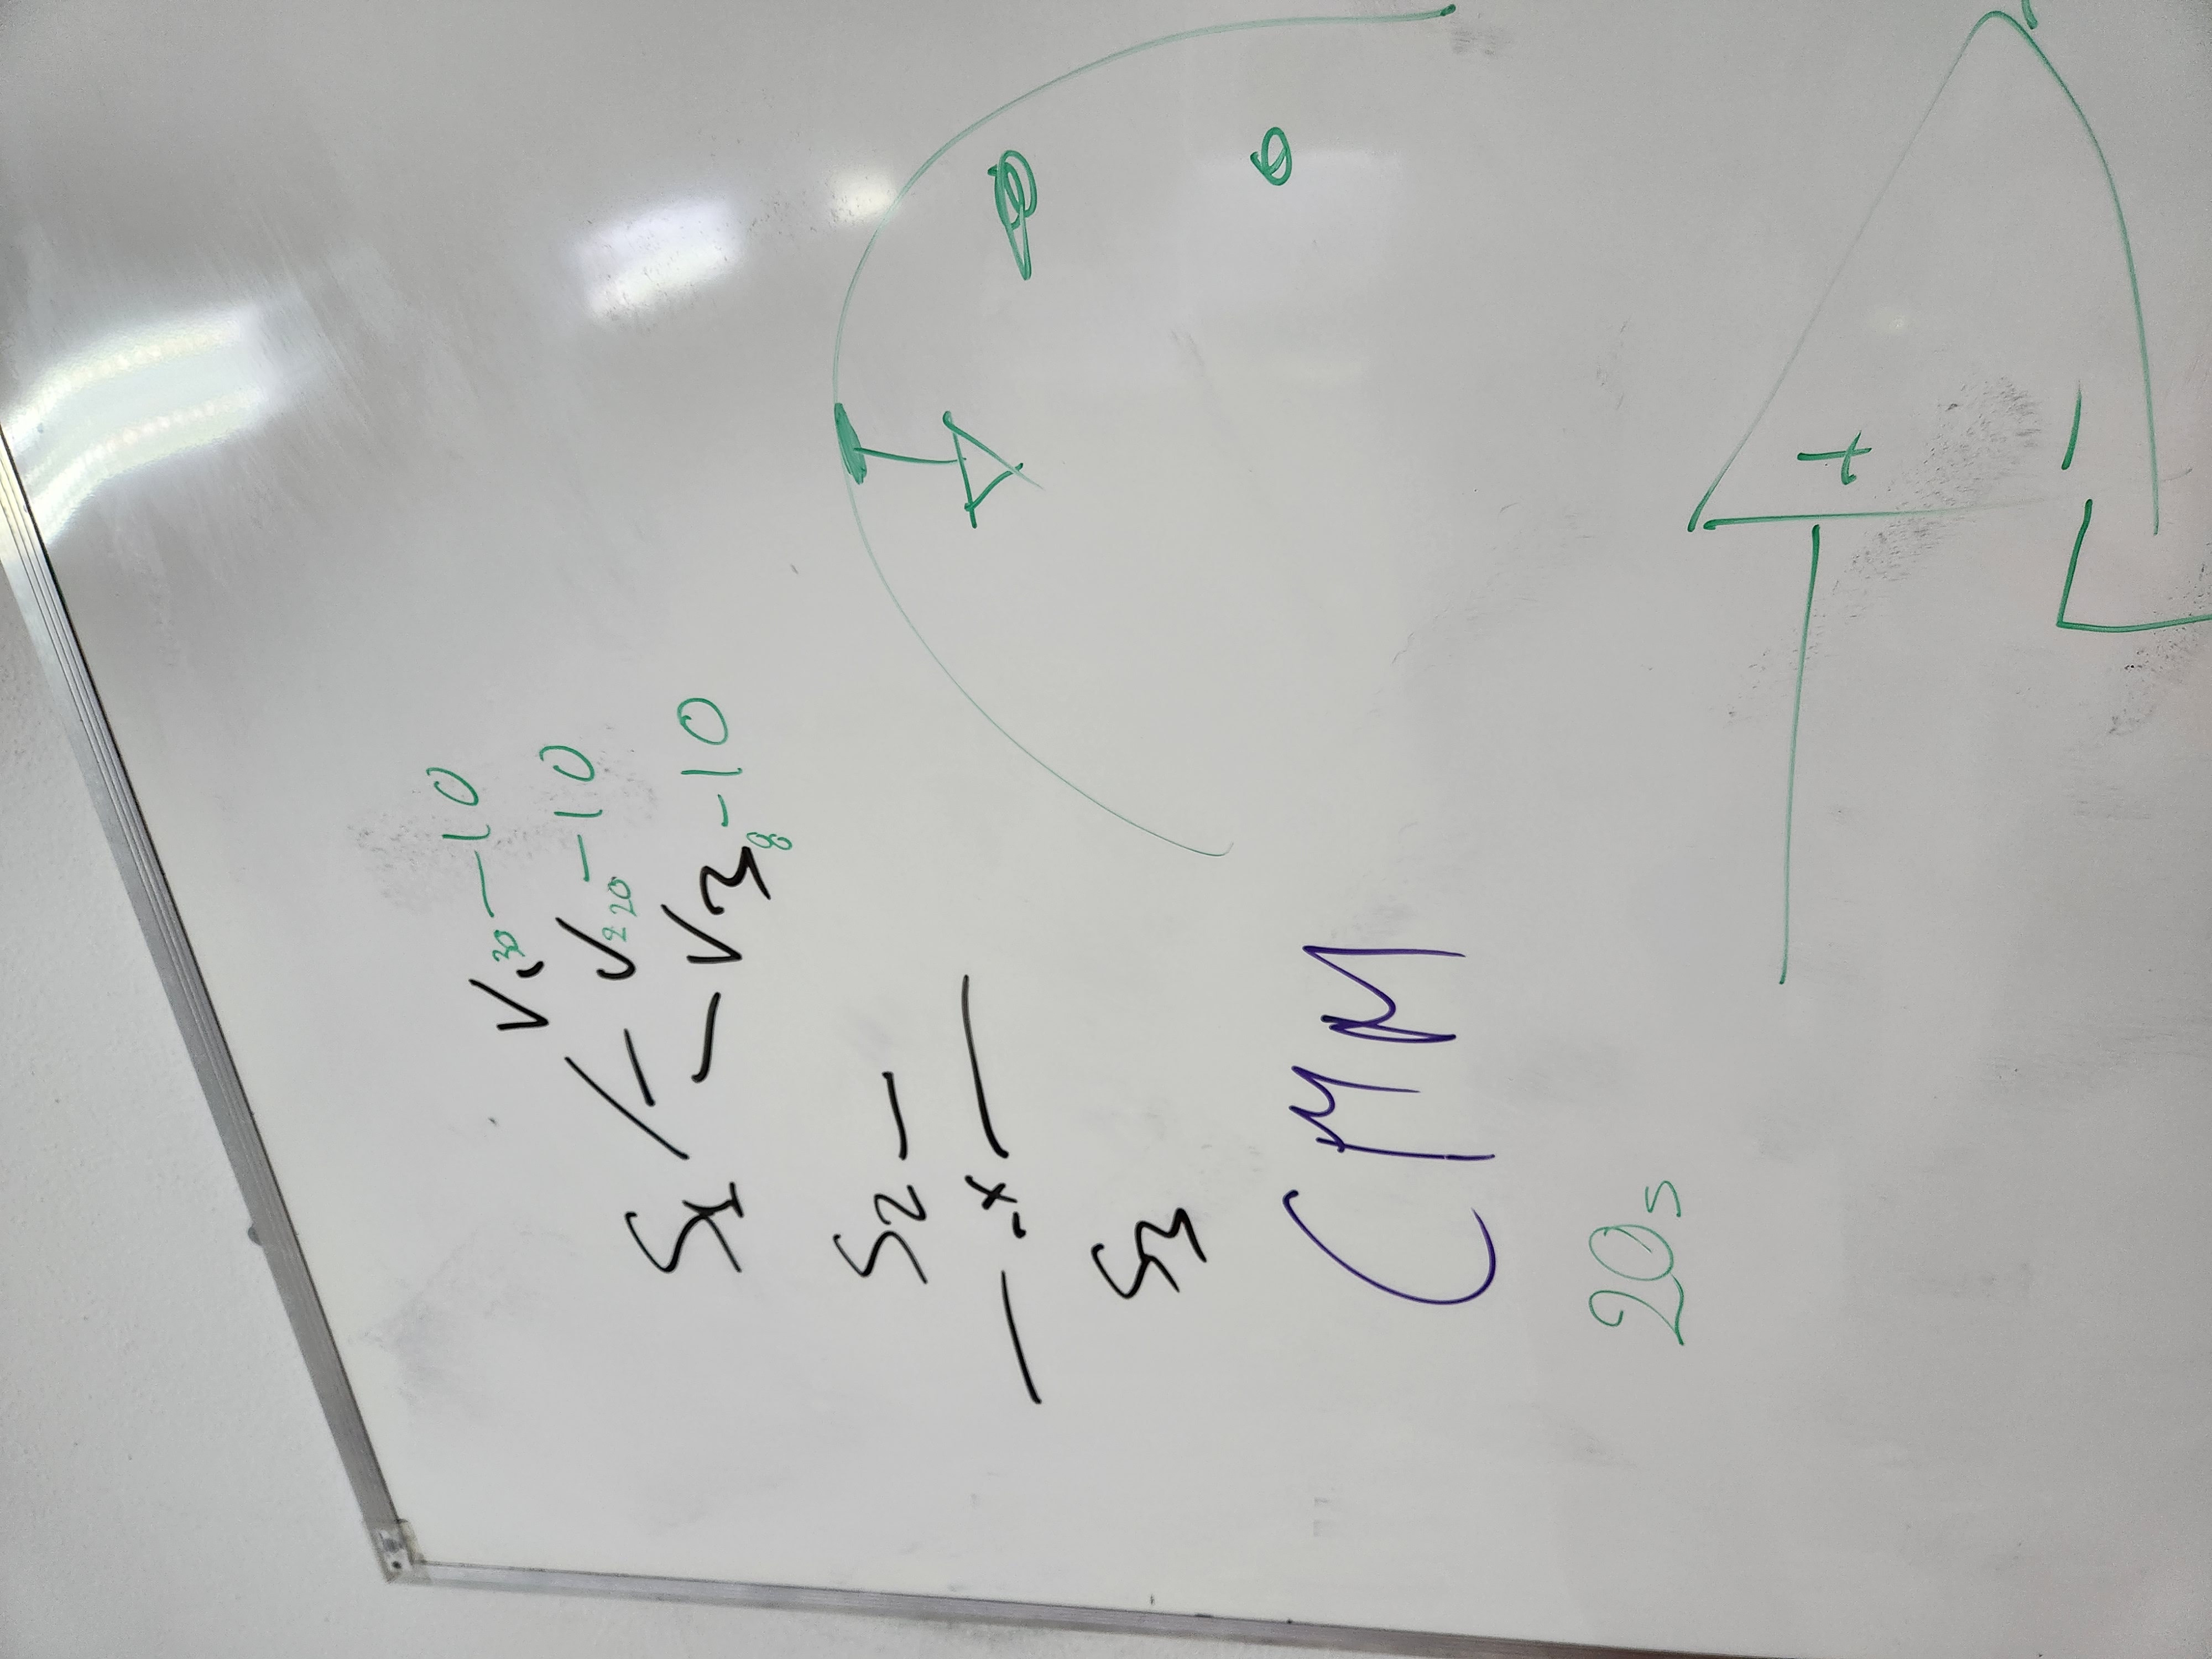 V1 30 - 10
S1 - V2 20 - 10
- V3 8 - 10
S2 -
x
S3
CMM
20s
+
-